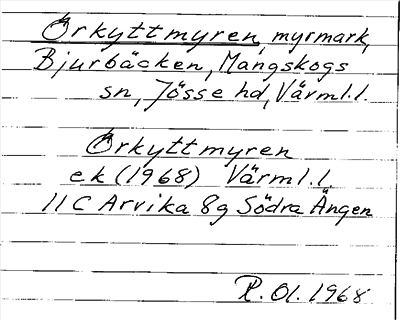 Örkyttmyren, myrmark,
Bjurbäcken, Mangskogs
sn, Jösse hd, Värml.l.
Örkyttmyren
ek (1968) Värml.l.
11C Arvika 8g Södra Ängen
P. Ol. 1968